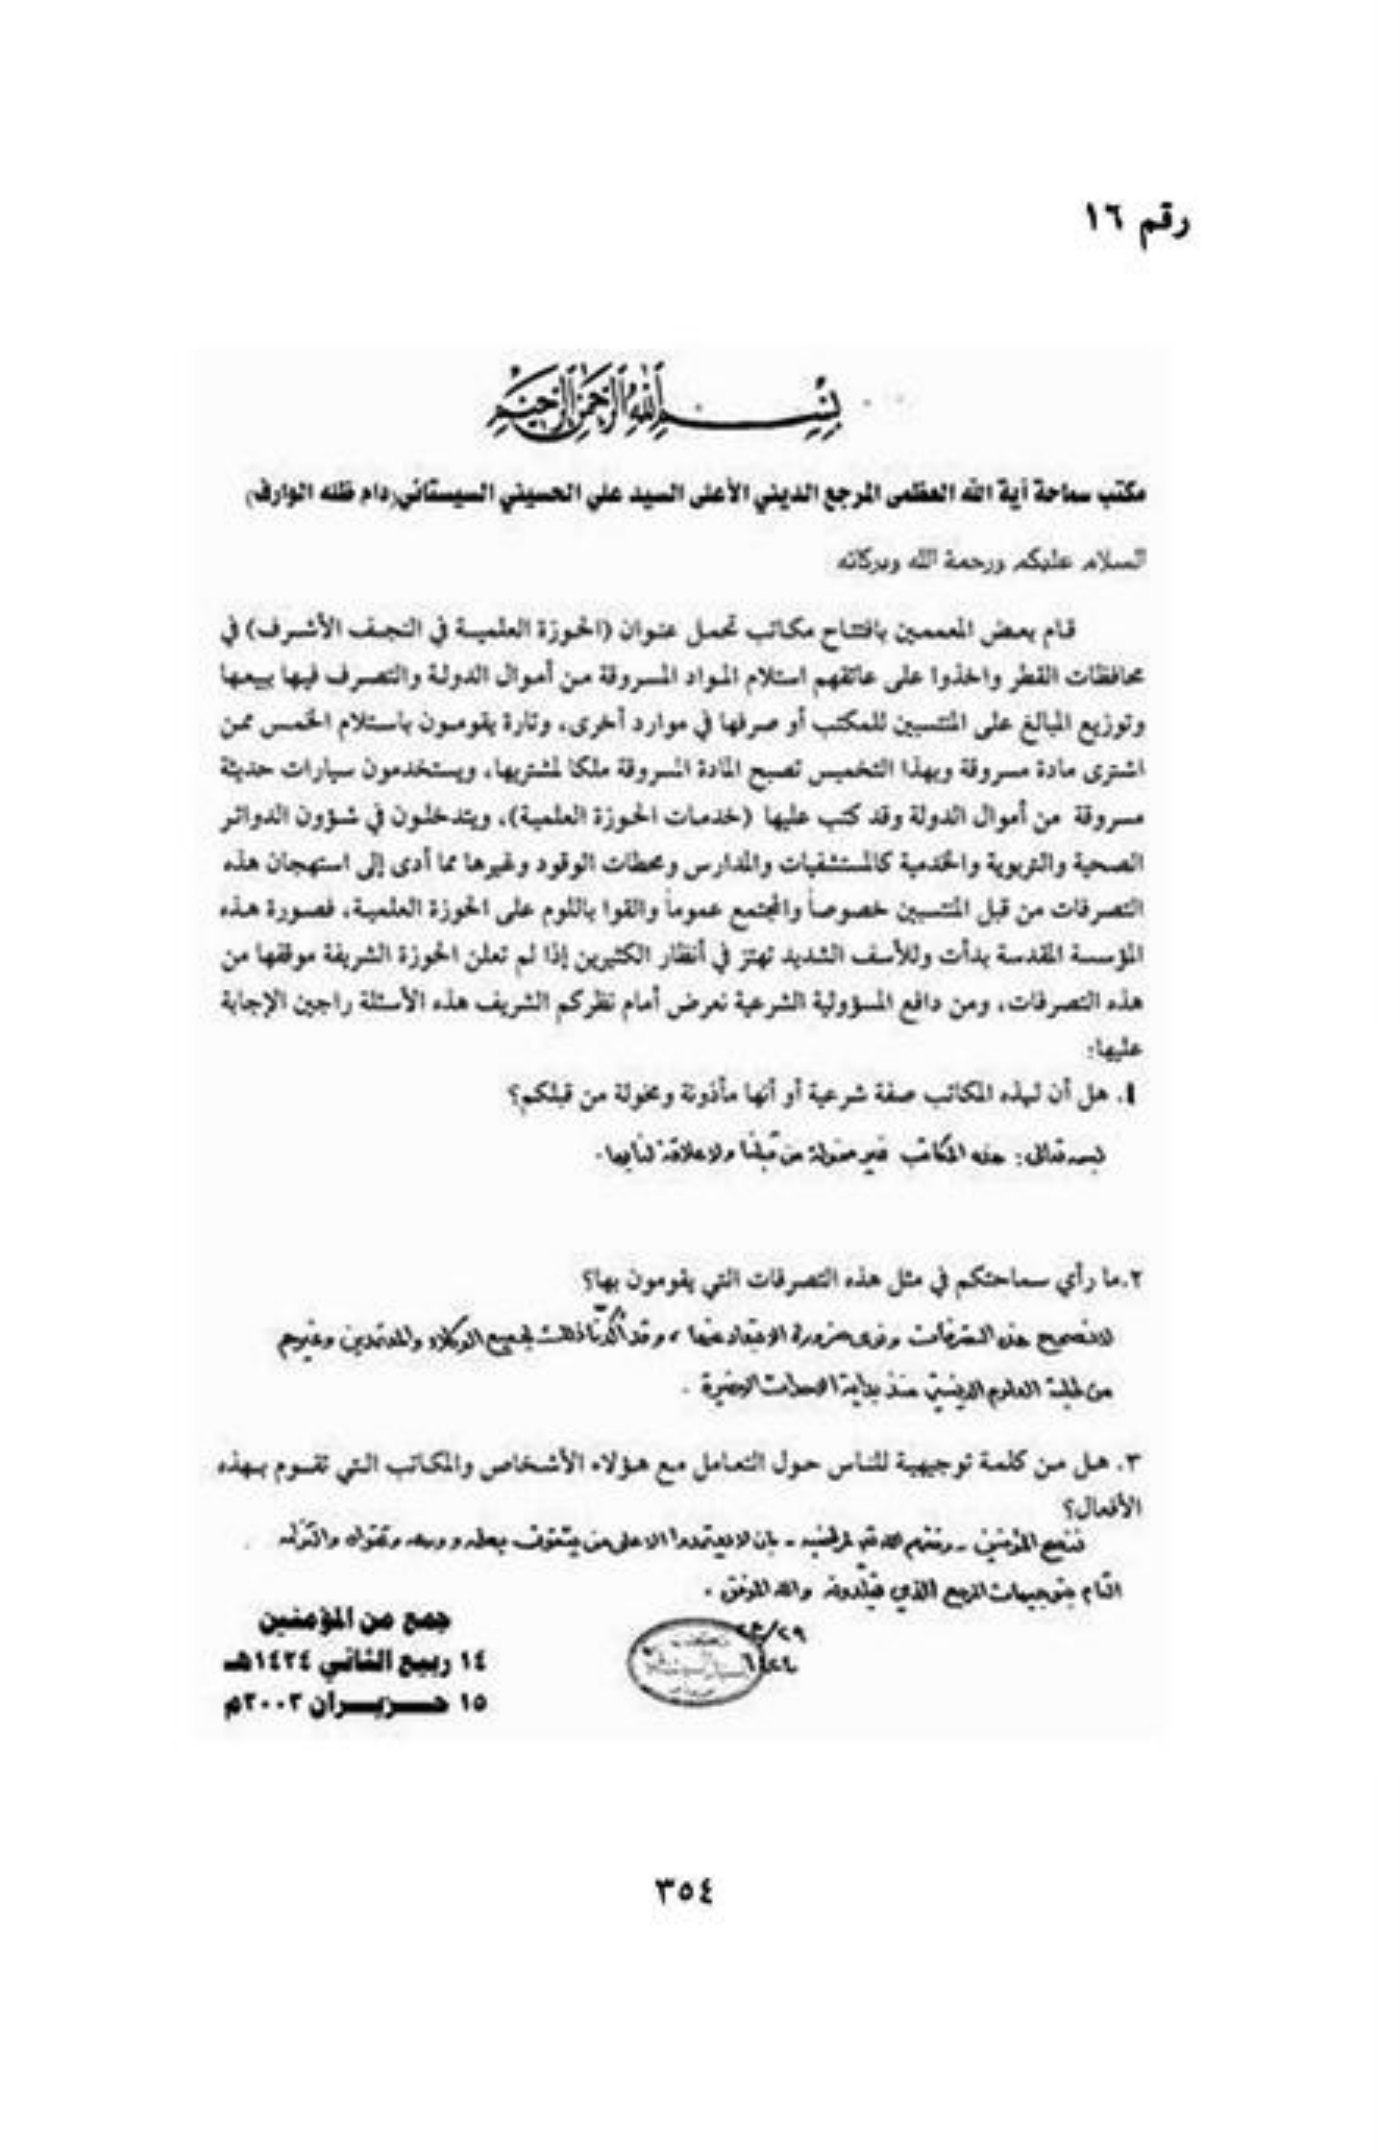 رقم ١٦
بسم الله الرحمن الرحيم
مكتب سماحة آية الله العظمى المرجع الديني الأعلى السيد علي الحسيني السيستاني (دام ظله الوارف)
السلام عليكم ورحمة الله وبركاته
قام بعض المعممين بافتتاح مكاتب تحمل عنوان (الحوزة العلمية في النجف الأشرف) في
محافظات القطر واخذوا على عاتقهم استلام المواد المسروقة من أموال الدولة والتصرف فيها ببيعها
وتوزيع المبالغ على المنتسبين للمكتب أو صرفها في موارد أخرى، وتارة يقومون باستلام الخمس ممن
اشترى مادة مسروقة وبهذا التخميس تصبح المادة المسروقة ملكا لمشتريها، ويستخدمون سيارات حديثة
مسروقة من أموال الدولة وقد كتب عليها (خدمات الحوزة العلمية)، ويتدخلون في شؤون الدوائر
الصحية والتربوية والخدمية كالمستشفيات والمدارس ومحطات الوقود وغيرها مما أدى إلى استهجان هذه
التصرفات من قبل المنتسبين خصوصاً والمجتمع عموماً والقوا باللوم على الحوزة العلمية، فصورة هذه
المؤسسة المقدسة بدأت وللأسف الشديد تهتز في أنظار الكثيرين إذا لم تعلن الحوزة الشريفة موقفها من
هذه التصرفات، ومن دافع المسؤولية الشرعية نعرض أمام نظركم الشريف هذه الأسئلة راجين الإجابة
عليها:
١. هل أن لهذه المكاتب صفة شرعية أو أنها مأذونة ومخولة من قبلكم؟
بسمه تعالى: هذه المكاتب غير مخولة من قبلنا ولا علاقة لنا بها.
٢. ما رأي سماحتكم في مثل هذه التصرفات التي يقومون بها؟
لا نصحح هذه التصرفات ونرى ضرورة الابتعاد عنها، وقد أكدنا ذلك لجميع الوكلاء والمعتمدين وغيرهم
من طلبة العلوم الدينية منذ بداية الاحداث الاخيرة.
٣. هل من كلمة توجيهية للناس حول التعامل مع هؤلاء الأشخاص والمكاتب التي تقوم بهذه
الأفعال؟
ننصح المؤمنين - وفقهم الله تعالى لمراضيه - بان لا يعتمدوا الا على من يتقون بعلمه وورعه وتقواه والتزامه
التام بتوجيهات المرجع الذي يقلدونه والله الموفق.
جمع من المؤمنين
١٤ ربيع الثاني ١٤٢٤هـ
١٥ حزيران ٢٠٠٣م
٣٥٤